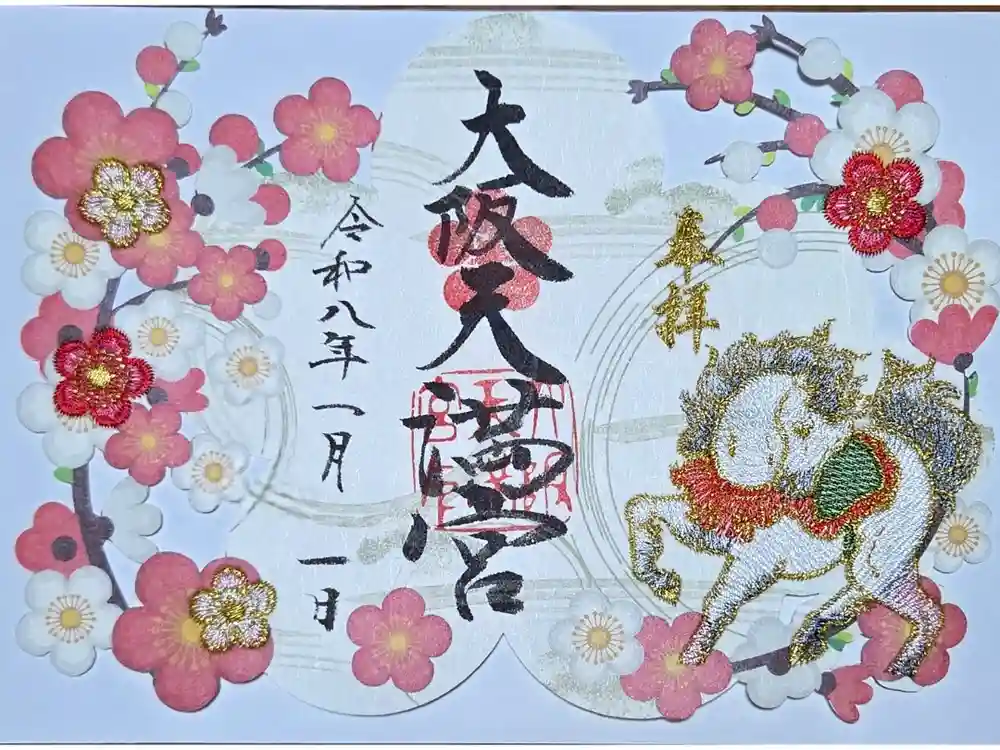 奉拝
大阪天満宮
令和八年一月一日